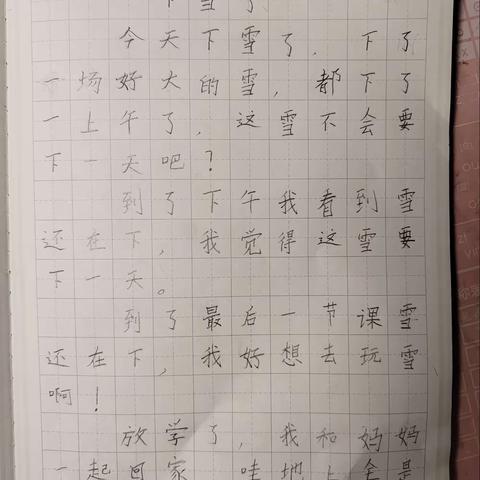 下雪了
今天下雪了，下了
一场好大的雪，都下了
一上午了，这雪不会要
下一天吧？
到了下午我看到雪
还在下，我觉得这雪要
下一天。
到了最后一节课雪
还在下，我好想去玩雪
啊！
放学了，我和妈妈
一起回家，哇地上全是